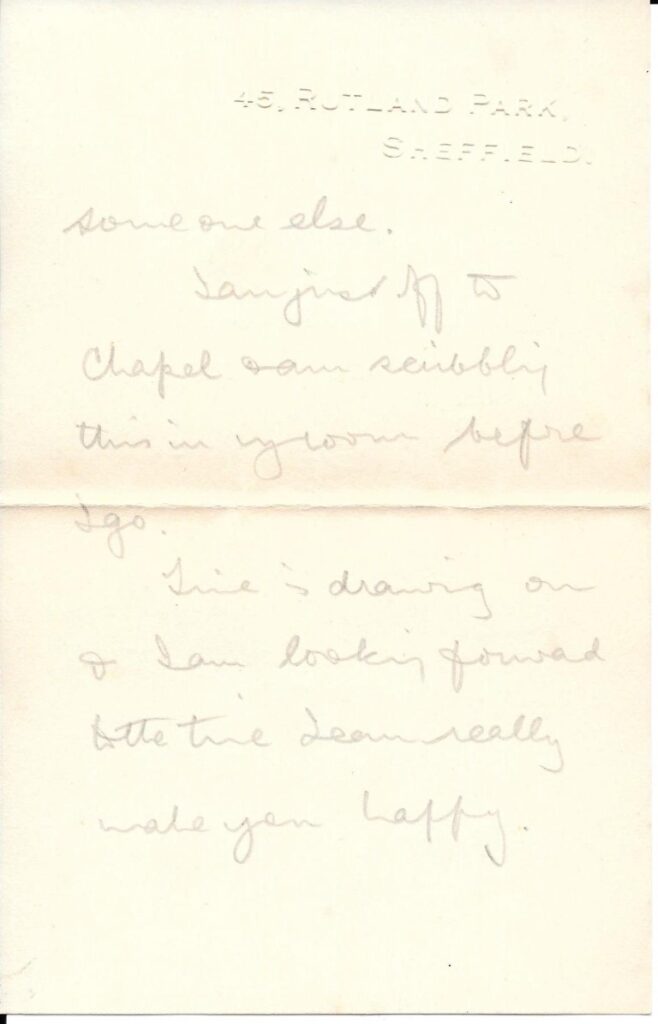 45, RUTLAND PARK,
SHEFFIELD.
someone else.
I am just off to
Chapel & am scribbling
this in my room before
I go.
Time is drawing on
& I am looking forward
to the time I can really
make you happy.